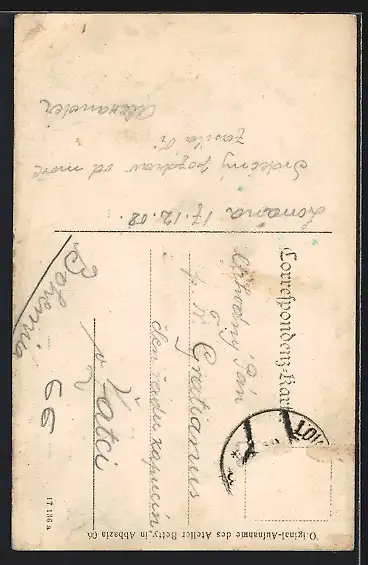 Correspondenz-Karte
Lovrana 17.12.08.
Srdečný pozdrav od moře
zasílá Ti
Alexander
Velebný Pán
p. W. Gratianus
člen řádu kapucínů
v Žatci
Bohemia
66
Original-Aufnahme des Atelier Betty, in Abbazia 06
17 136 a